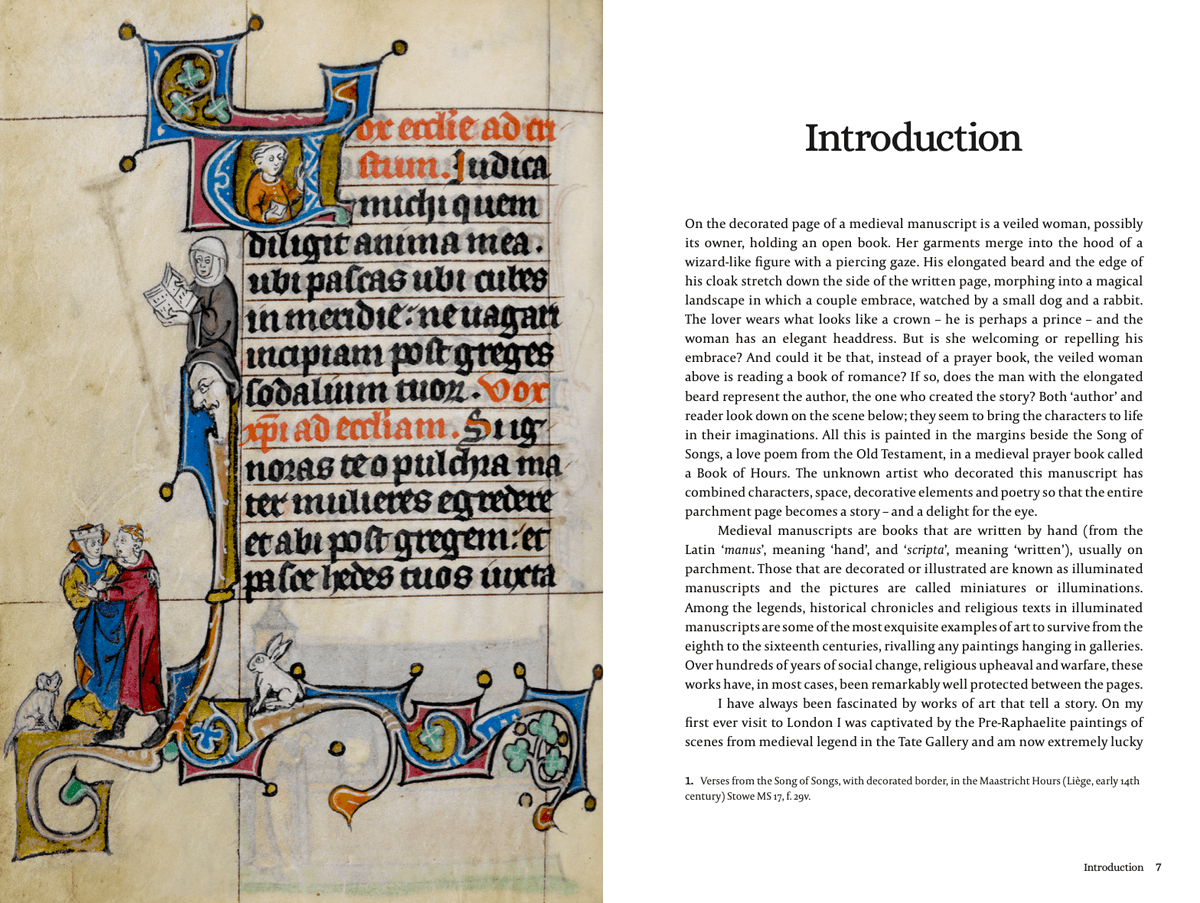 Vox ecclie ad cri
stum. Iudica
michi quem
diligit anima mea.
ubi pascas ubi cubes
in meridie: ne uagari
incipiam post greges
sodalium tuoꝝ. Vox
xp̄i ad eccliam. Si ig
noras te o pulchra ma
ter mulieres egredere
et abi post gregem: et
pasce hedes tuos iuxta
Introduction
On the decorated page of a medieval manuscript is a veiled woman, possibly
its owner, holding an open book. Her garments merge into the hood of a
wizard-like figure with a piercing gaze. His elongated beard and the edge of
his cloak stretch down the side of the written page, morphing into a magical
landscape in which a couple embrace, watched by a small dog and a rabbit.
The lover wears what looks like a crown – he is perhaps a prince – and the
woman has an elegant headdress. But is she welcoming or repelling his
embrace? And could it be that, instead of a prayer book, the veiled woman
above is reading a book of romance? If so, does the man with the elongated
beard represent the author, the one who created the story? Both ‘author’ and
reader look down on the scene below; they seem to bring the characters to life
in their imaginations. All this is painted in the margins beside the Song of
Songs, a love poem from the Old Testament, in a medieval prayer book called
a Book of Hours. The unknown artist who decorated this manuscript has
combined characters, space, decorative elements and poetry so that the entire
parchment page becomes a story – and a delight for the eye.
Medieval manuscripts are books that are written by hand (from the
Latin ‘manus’, meaning ‘hand’, and ‘scripta’, meaning ‘written’), usually on
parchment. Those that are decorated or illustrated are known as illuminated
manuscripts and the pictures are called miniatures or illuminations.
Among the legends, historical chronicles and religious texts in illuminated
manuscripts are some of the most exquisite examples of art to survive from the
eighth to the sixteenth centuries, rivalling any paintings hanging in galleries.
Over hundreds of years of social change, religious upheaval and warfare, these
works have, in most cases, been remarkably well protected between the pages.
I have always been fascinated by works of art that tell a story. On my
first ever visit to London I was captivated by the Pre-Raphaelite paintings of
scenes from medieval legend in the Tate Gallery and am now extremely lucky
1. Verses from the Song of Songs, with decorated border, in the Maastricht Hours (Liège, early 14th
century) Stowe MS 17, f. 29v.
Introduction 7